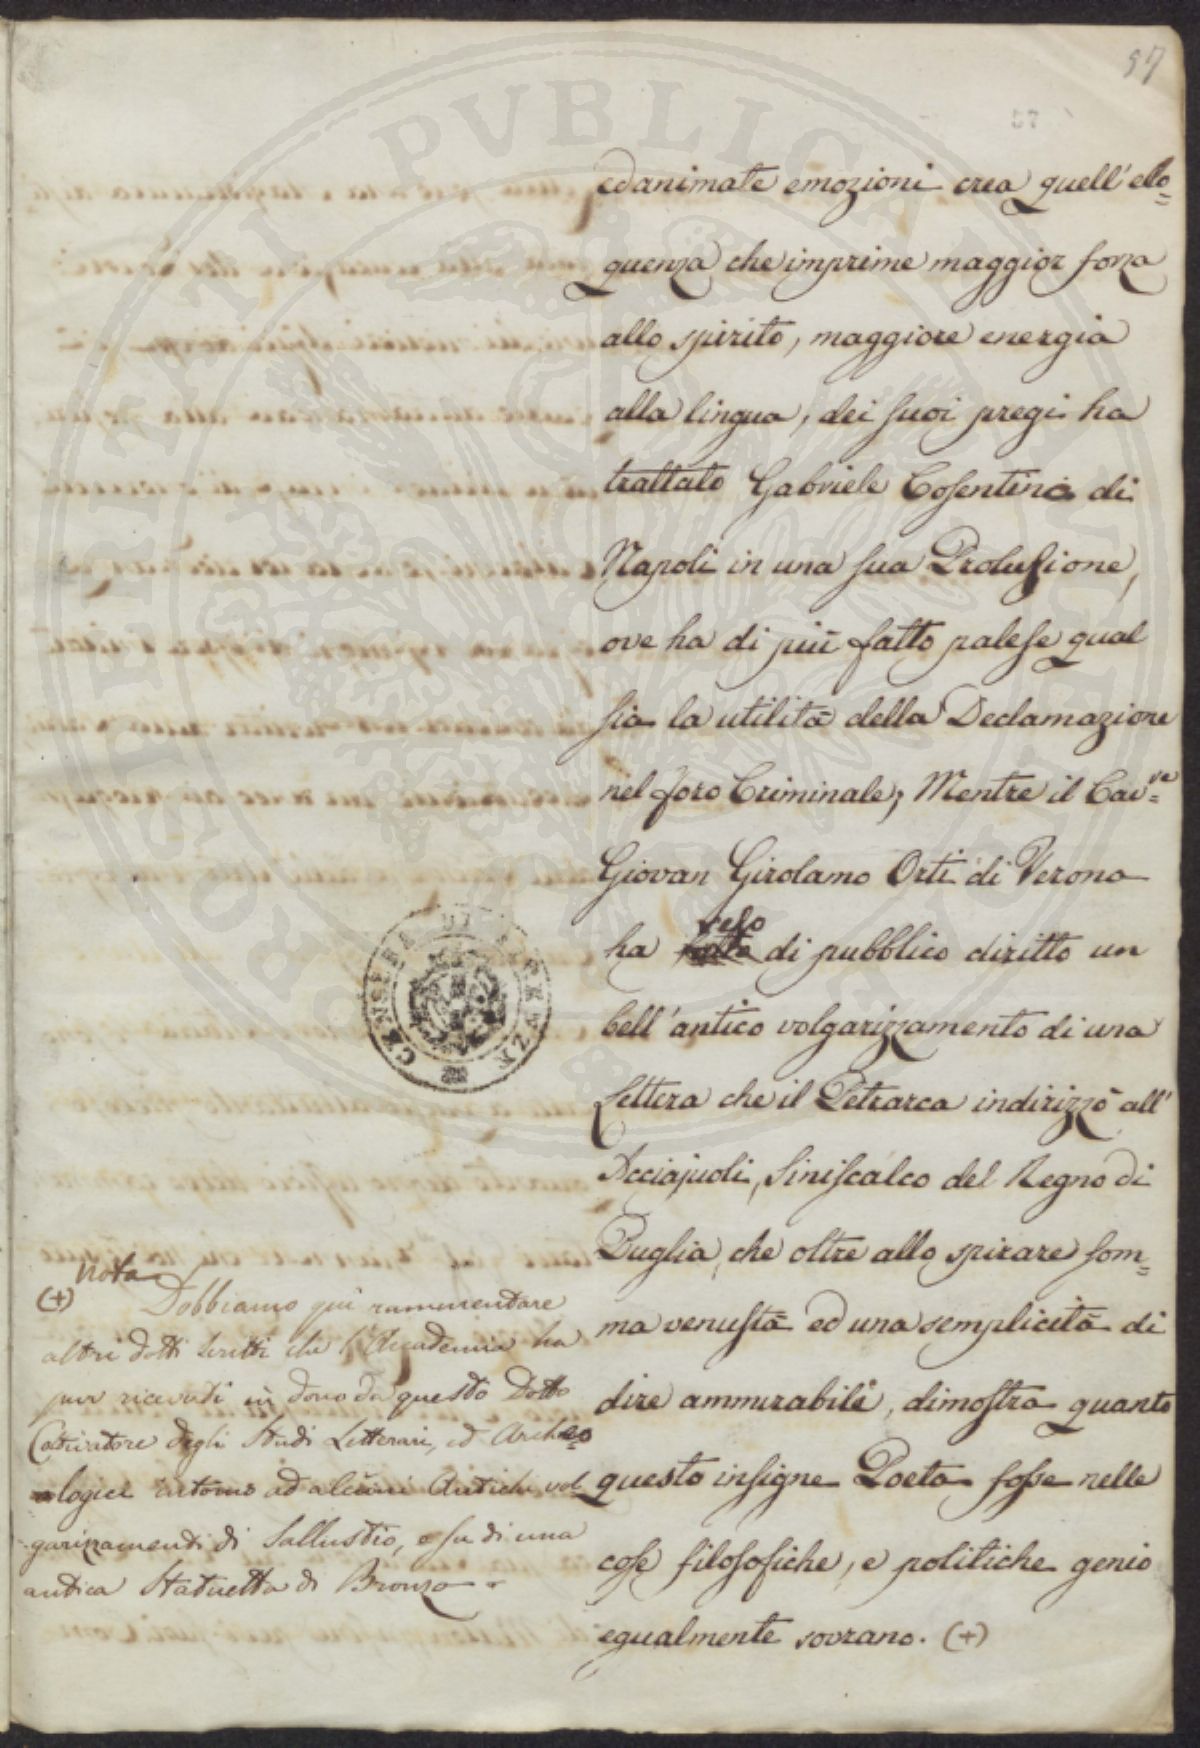 57
57
ed animate emozioni crea quell'elo=
quenza che imprime maggior forza
allo spirito, maggiore energia
alla lingua, dei suoi pregi ha
trattato Gabriele Cosentino di
Napoli in una sua Prolusione,
ove ha di più fatto palese qual
sia la utilità della Declamazione
nel foro Criminale; Mentre il Cav=re
Giovan Girolamo Orti di Verona
ha reso di pubblico diritto un
bell'antico volgarizzamento di una
Lettera che il Petrarca indirizzò all'
Acciajuoli, Siniscalco del Regno di
Puglia, che oltre allo spirare som=
ma venustà ed una semplicità di
dire ammirabile, dimostra quanto
questo insigne Poeta fosse nelle
cose filosofiche, e politiche genio
egualmente sovrano. (+)
Nota
(+) Dobbiamo qui rammentare
altri dotti scritti che l'Accademia ha
pur ricevuti in dono da questo Dotto
Coltivatore degli Studi Letterari, ed Archeo
logici intorno ad alcuni Antichi vol=
garizzamenti di Sallustio, e su di una
antica Statuetta di Bronzo.
CENSURA DI FIRENZE
PROSPERITATI PUBLICAE AUGENDAE